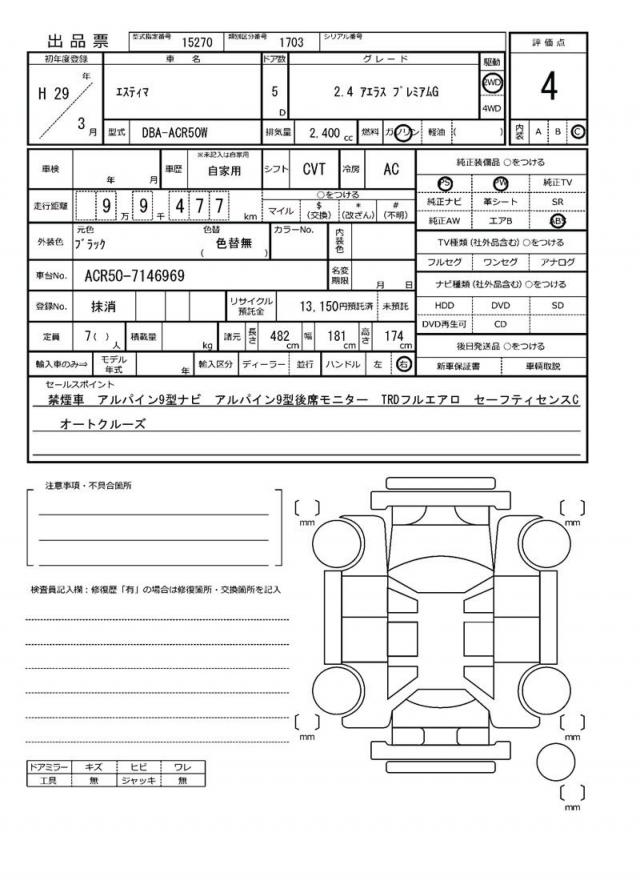 出品票 型式指定番号 15270 類別区分番号 1703 シリアル番号
初年度登録 車名 ドア数 グレード 駆動 評価点
H 29 年 3 月 エスティマ 5 D 2.4 アエラス プレミアムG 2WD 4WD 4
型式 DBA-ACR50W 排気量 2,400 cc 燃料 ガソリン 軽油 ( ) 内装 A B C
車検 年 月 車歴 ※未記入は自家用 自家用 シフト CVT 冷房 AC 純正装備品 ○をつける
PS PW 純正TV
走行距離 9 万 9 千 4 7 7 km ○をつける
マイル $ (交換) * (改ざん) # (不明)
純正ナビ 革シート SR
純正AW エアB ABS
外装色 元色 ブラック 色替 色替無 ( ) カラーNo. 内装色
TV種類 (社外品含む) ○をつける
フルセグ ワンセグ アナログ
車台No. ACR50-7146969 名変期限 月 日
ナビ種類 (社外品含む) ○をつける
登録No. 抹消 リサイクル預託金 13,150円預託済 未預託
HDD DVD SD
DVD再生可 CD
定員 7( ) 人 積載量 kg 諸元 長さ 482 cm 幅 181 cm 高さ 174 cm
後日発送品 ○をつける
輸入車のみ⇒ モデル年式 年 輸入区分 ディーラー 並行 ハンドル 左 右
新車保証書 車輌取説
セールスポイント
禁煙車 アルパイン9型ナビ アルパイン9型後席モニター TRDフルエアロ セーフティセンスC
オートクルーズ
注意事項・不具合箇所
検査員記入欄：修復歴「有」の場合は修復箇所・交換箇所を記入
mm
mm
mm
mm
mm
ドアミラー キズ ヒビ ワレ
工具 無 ジャッキ 無